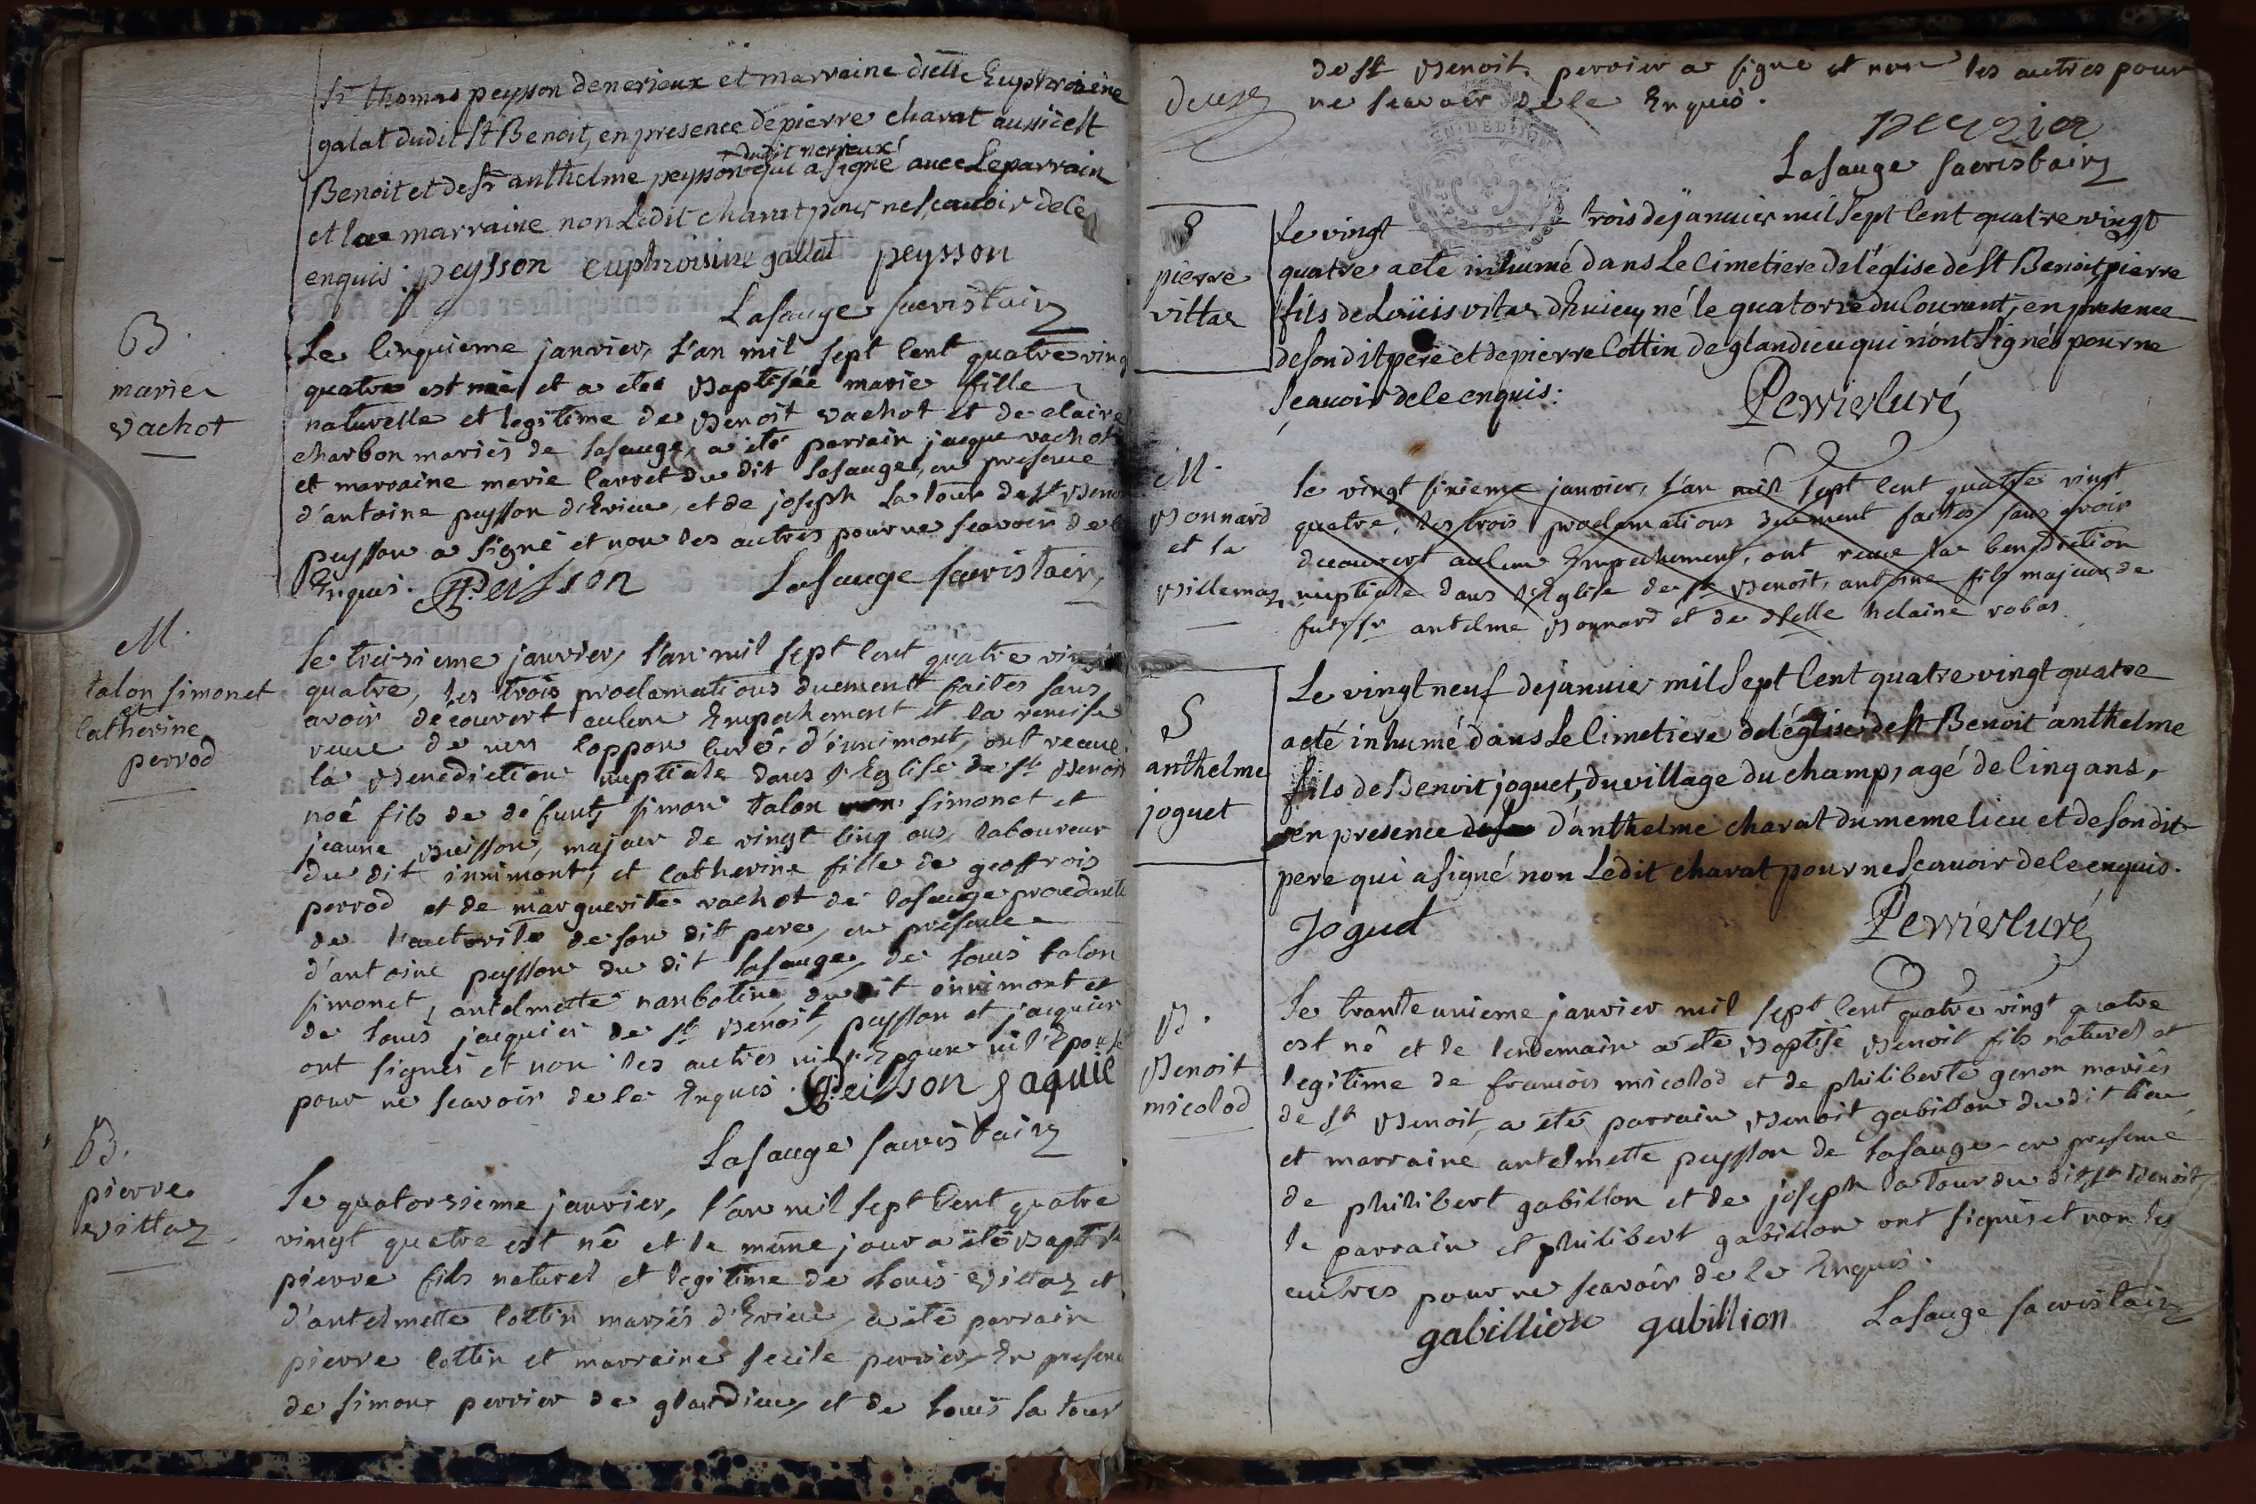 Sr thomas peysson de nerieux et marraine dselle Euphroisine
galat dudit St Benoit, en presence de pierre charat aussi de St
dudit nerieux
Benoit et de Sr anthelme peysson qui a signé avec Le parrain
et la marraine non Ledit charat pour ne scavoir de ce
enquis. peysson euphroisine gallat peysson
Lasauge sacristain
B.
marie
vachot
Le cinquieme janvier, l'an mil sept cent quatre ving
quatre est née et a eté Baptisée marie fille
naturelle et legitime de Benoit vachot et de claire
charbon mariés de lasauge, a été parrain jacque vachot
et marraine marie carret du dit lasauge, en presence
d'antoine peysson d'Evieu, et de joseph la tour de St Beno
peysson a signé et non les autres pour ne scavoir de c
Enquis. Peisson Lasauge sacristain
M.
talon simonet
et
Catherine
perrod
Le treisieme janvier, l'an mil sept cent quatre vin
quatre, les trois proclamations duement faites sans
avoir decouvert aucun Empechement et la remise
reçue de mr coppon curé d'innimont, ont reçue
la Benediction nuptiale dans l'Eglise de St Benoit
noé fils de défunt simon talon simonet et
jeanne Buisson, majeur de vingt cinq ans, laboureur
du dit innimont, et Catherine fille de geoffrois
perrod et de marguerite vachot de lasauge procedante
de l'autorité de son dit pere, en presence
d'antoine peysson du dit lasauge, de louis talon
simonet, antelmette nanboline, du dit innimont et
de louis jacquier de St Benoit, peysson et jacquier
ont signés et non les autres ni l'Epouse
pour ne scavoir de ce Enquis. Peisson Jaquie
Lasauge sacristain
B.
pierre
vittaz
Le quatorsieme janvier, l'an mil sept cent quatre
vingt quatre est né et le même jour a été Baptisé
pierre fils naturel et legitime de louis vittaz et
d'antelmette cottin mariés d'Evieu, a été parrain
pierre cottin et marraine secile perrier, En presence
de simon perrier de glandieu, et de louis la tour
deux
de St Benoit. perrier a signé et non les autres pour
ne scavoir de ce Enquis.
perrier
Lasauge sacristain
S
pierre
vittaz
Le vingt trois de janvier mil sept cent quatre vingt
quatre a eté inhumé dans Le cimetiere de l'église de St Benoit, pierre
fils de Loüis vitaz d'huieu, né le quatorze du courant, en presence
de son dit pere et de pierre cottin de glandieu qui n'ont signés pour ne
scauoir de ce enquis.
Perrier curé
M.
Bonnard
et la
villemaz
le vingt sixieme janvier, l'an mil sept cent quatre vingt
quatre, les trois proclamations duement faites sans avoir
decouvert aucun Empechement, ont reçue la benediction
nuptiale dans l'Eglise de St Benoit, antoine fils majeur de
fut Sr antelme Bonnard et de dselle helaine robas
S
anthelme
joguet
Le vingt neuf de janvier mil sept cent quatre vingt quatre
a eté inhumé dans Le cimetiere de l'église de St Benoit anthelme
fils de Benoit joguet, du village du champ, agé de cinq ans,
en presence d'anthelme charat du meme lieu et de son dit
pere qui a signé non Ledit charat pour ne scauoir de ce enquis.
Joguet Perrier curé
B.
Benoit
micolod
Le trante unieme janvier mil sept cent quatre vingt quatre
est né et le lendemain a été Baptisé Benoit fils naturel et
legitime de francois micolod et de philiberte genon mariés
de St Benoit, a été parrain Benoit gabillon du dit lieu
et marraine antelmette peysson de lasauge, en presence
de philibert gabillon et de joseph la tour du dit St Benoit
le parrain et philibert gabillon ont signés et non les
autres pour ne scavoir de ce Enquis.
gabillion gabillion Lasauge sacristain